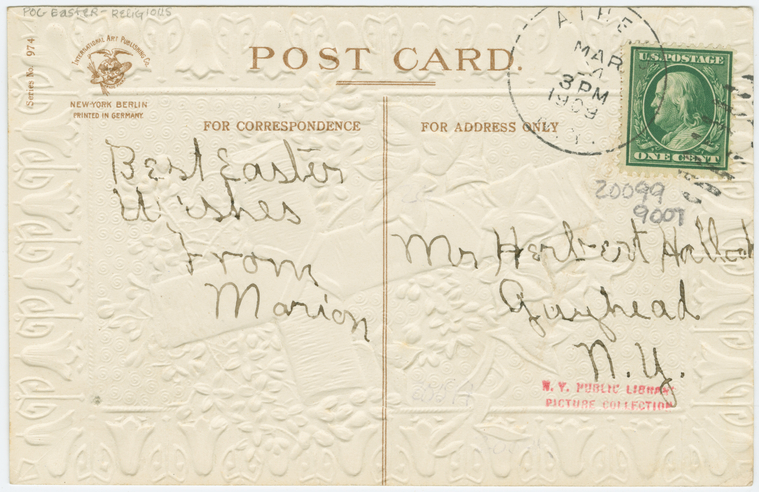 POC EASTER - RELIGIOUS
Series No. 974
INTERNATIONAL ART PUBLISHING Co.
NEW-YORK BERLIN
PRINTED IN GERMANY
POST CARD.
MAR
3 PM
1909
U.S. POSTAGE
ONE CENT
FOR CORRESPONDENCE
FOR ADDRESS ONLY
20099
9007
Best Easter
Wishes
From
Marion
Mr Herbert Hallock
Gayhead
N.Y.
N. Y. PUBLIC LIBRARY
PICTURE COLLECTION